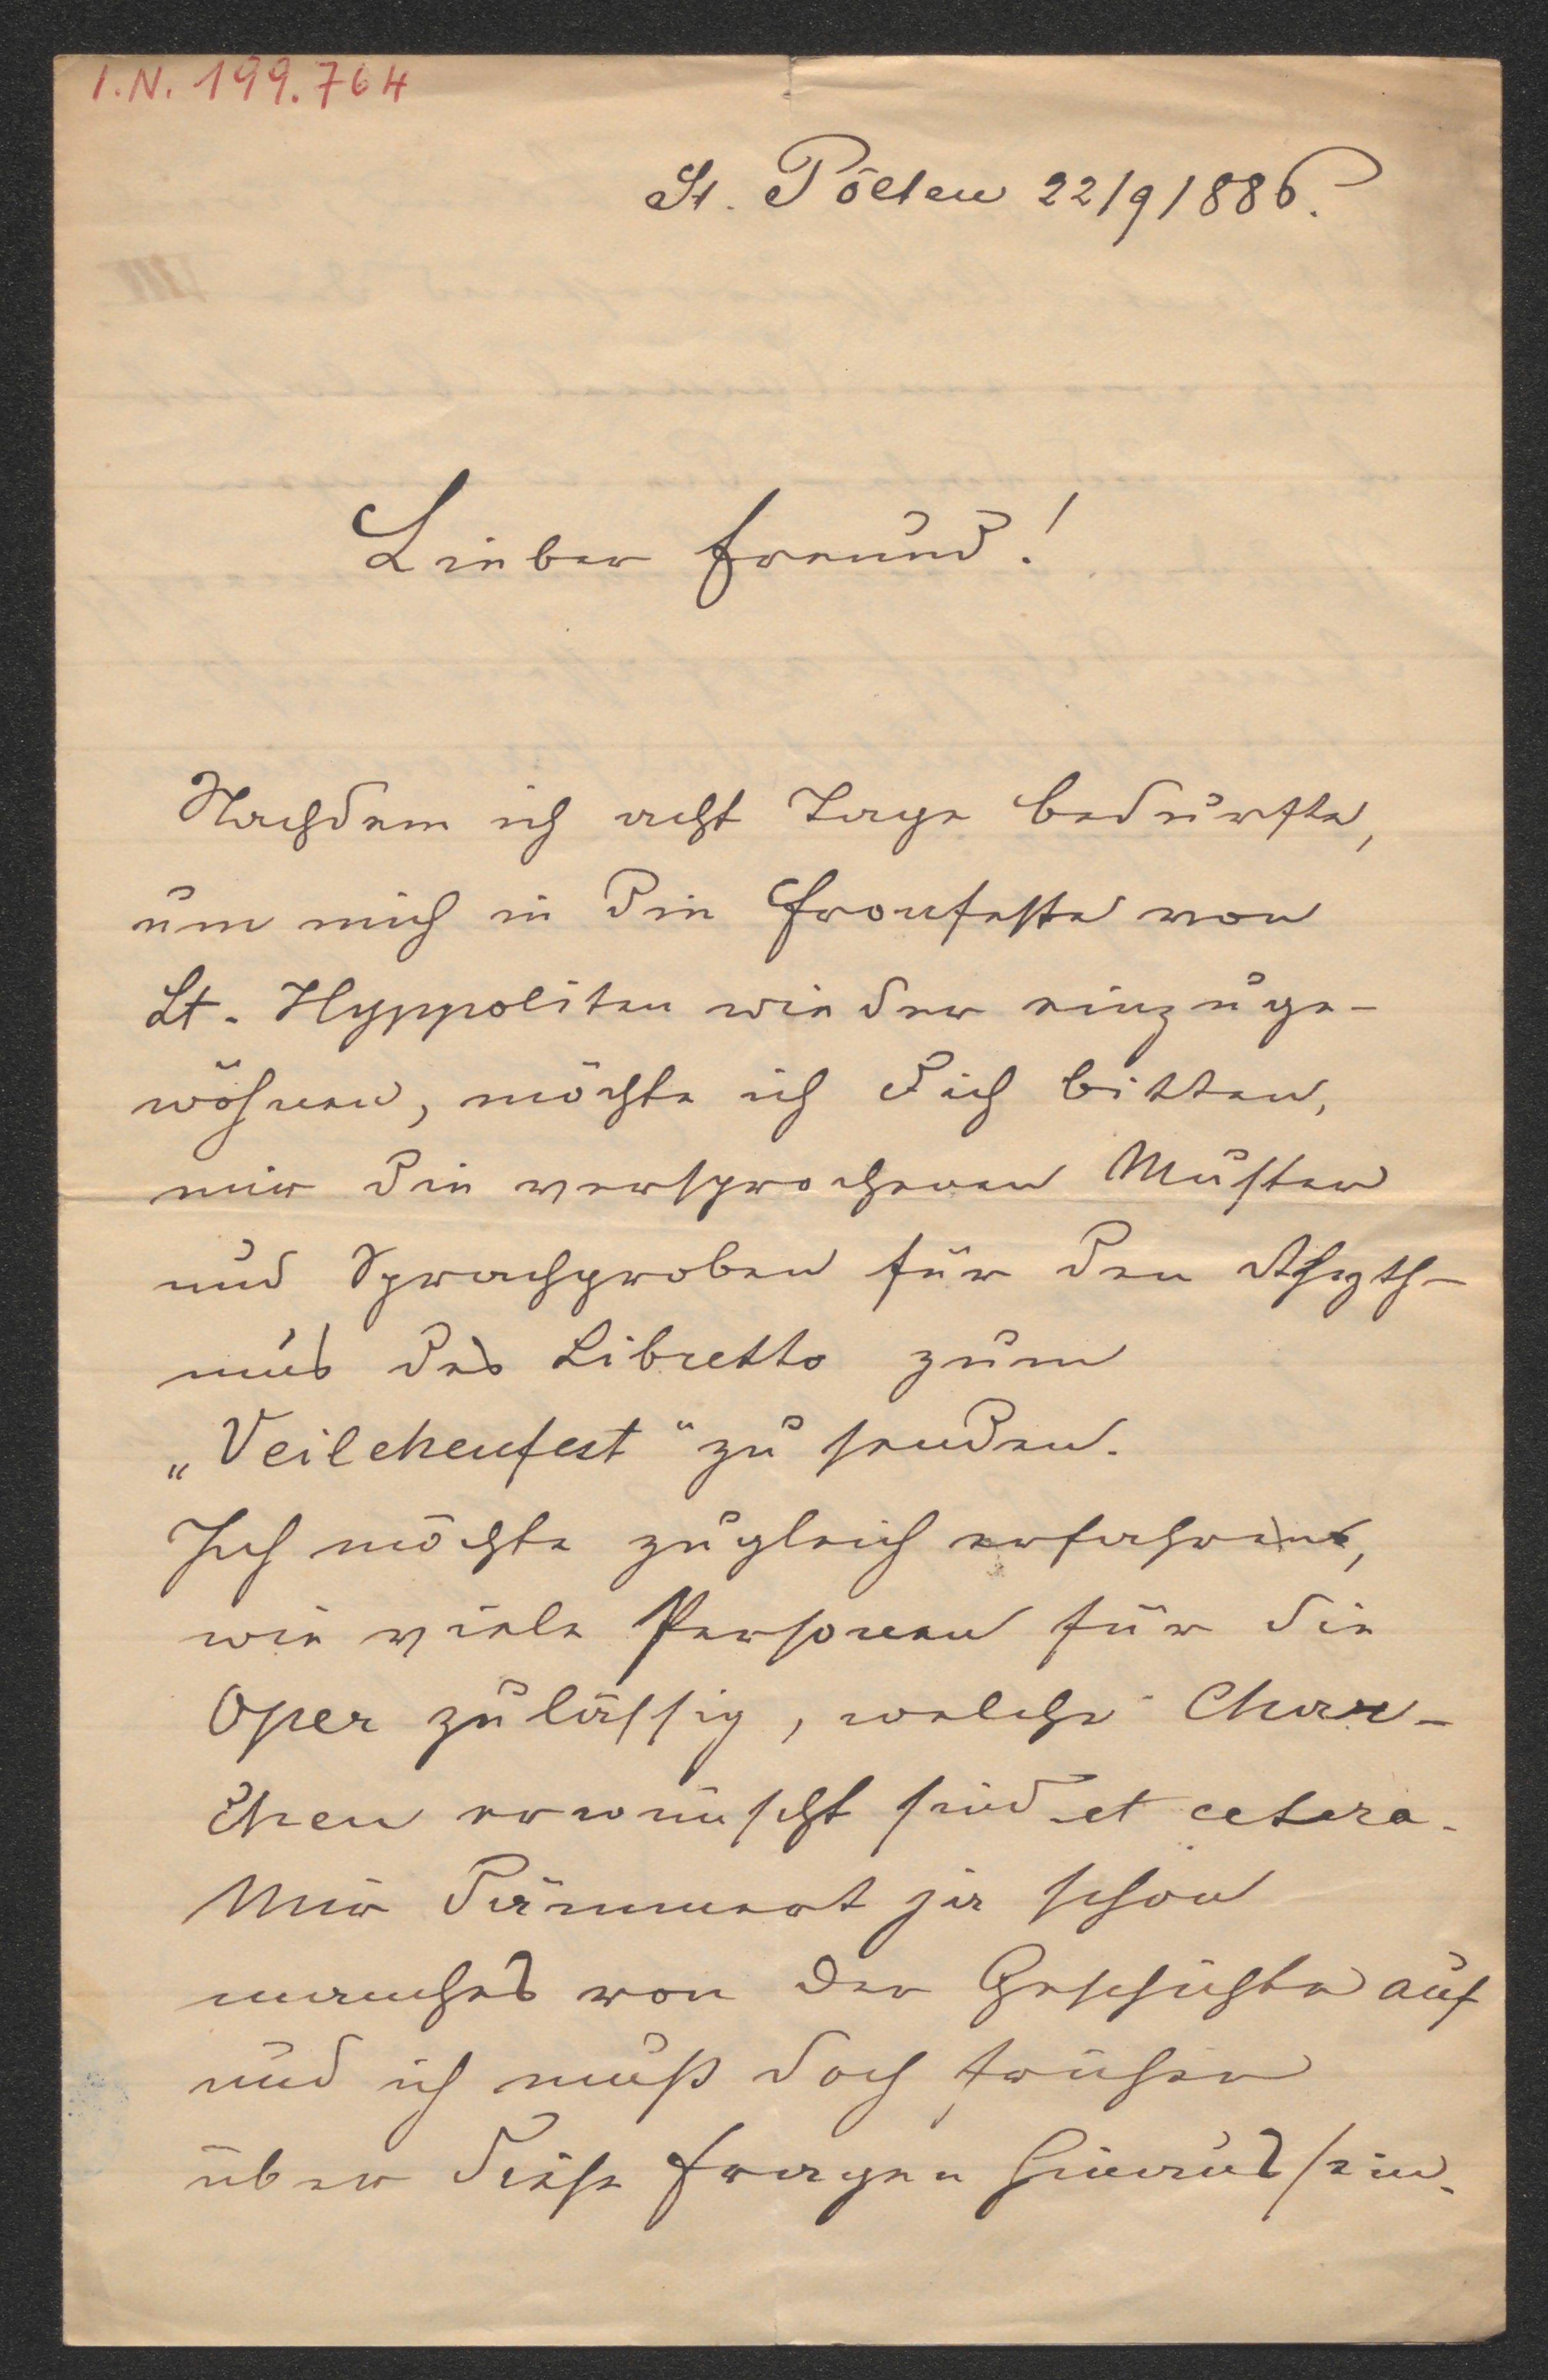 I.N. 199.764
St. Pölten 22/9/886.
Lieber Freund!
Nachdem ich acht Tage bedurfte,
um mich in die Fronfeste von
St. Hyppoliten wieder einzuge-
wöhnen, möchte ich Dich bitten,
mir die versprochenen Muster
und Sprachproben für den Rhyth-
mus des Libretto zum
„Veilchenfest" zu senden.
Ich möchte zugleich erfahren,
wie viele Personen für die
Oper zulässig, welche Char-
chen erwünscht sind et cetera.
Mir dämmert ja schon
manches von der Geschichte auf
und ich muß doch früher
über diese Fragen hinaus sein.